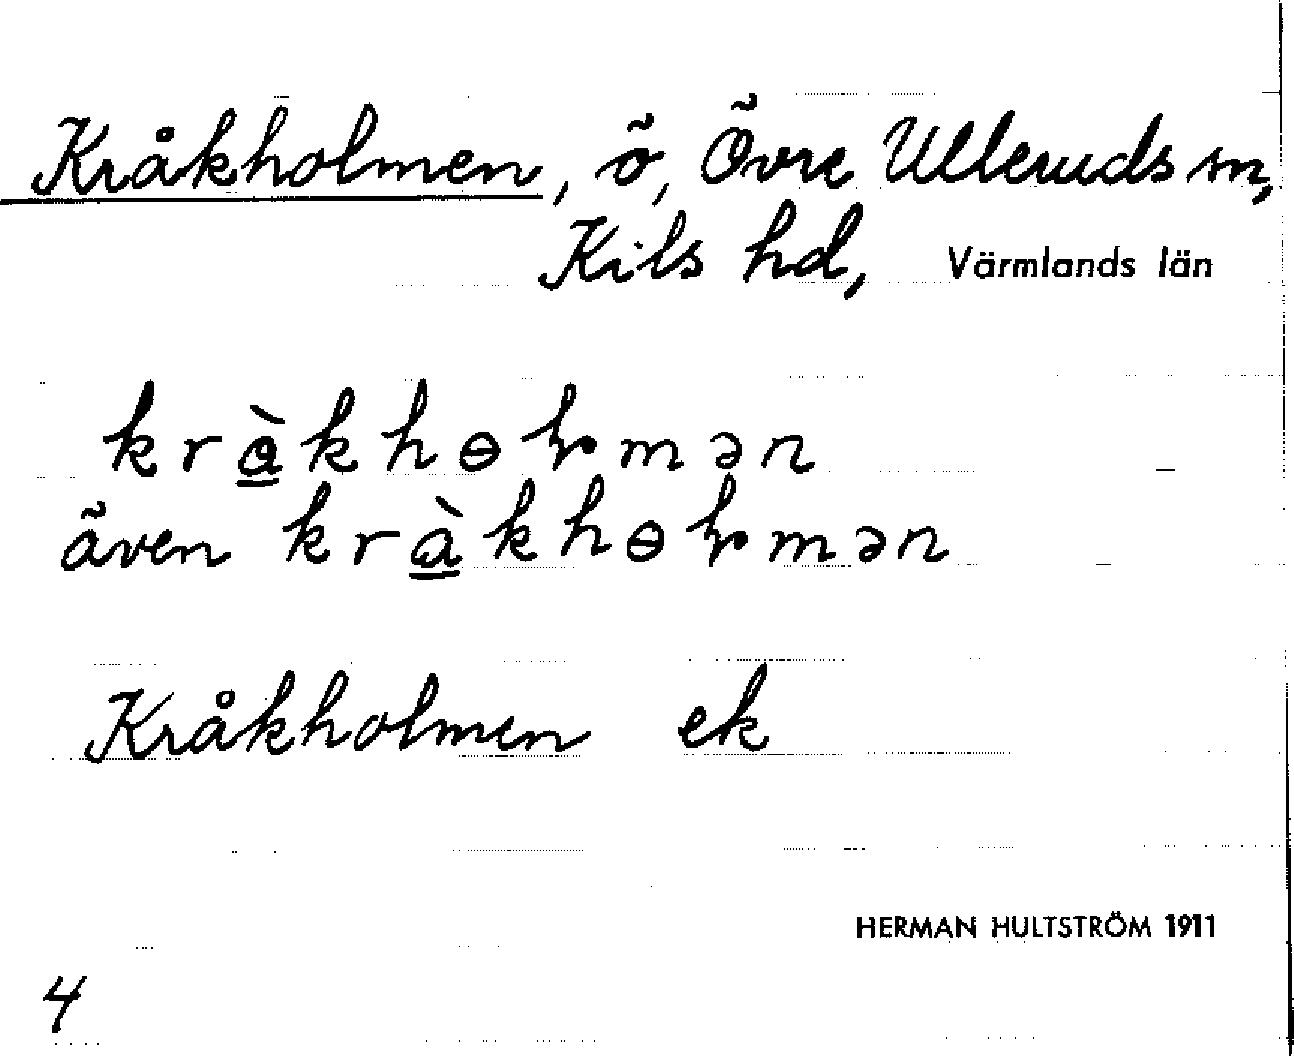 Kråkholmen, ö, Övre Ulleruds sn,
Kils hd, Värmlands län
kràkhɵɫmən
även kràkhɵɫmən
Kråkholmen ek
HERMAN HULTSTRÖM 1911
4